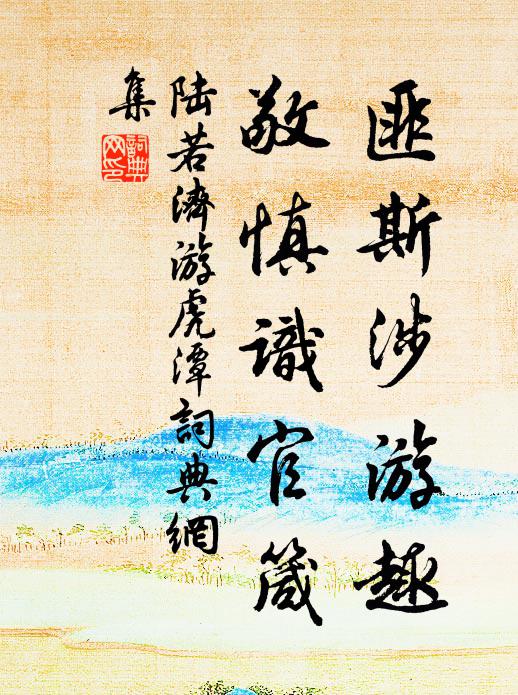 匪斯涉游趣
敬慎識官箴
陸若濟游虎潭詞典網
集
詞典
网印